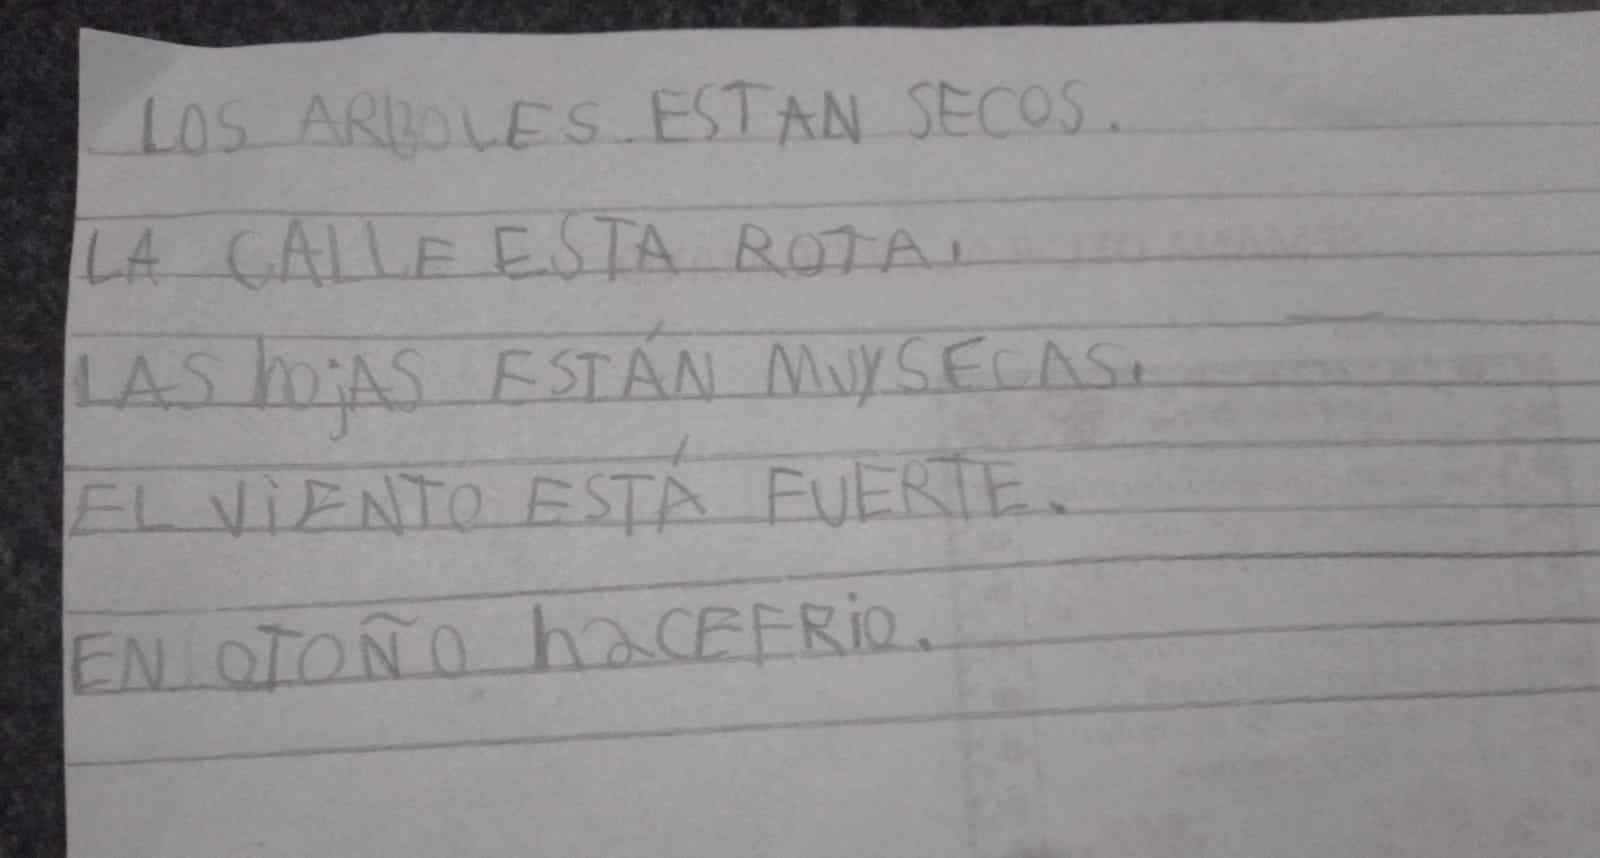 LOS ARBOLES ESTAN SECOS.
LA CALLE ESTA ROTA.
LAS hojAS ESTÁN MUYSECAS.
EL ViENTO ESTÁ FUERTE.
EN OTOÑO haCEFRiO.